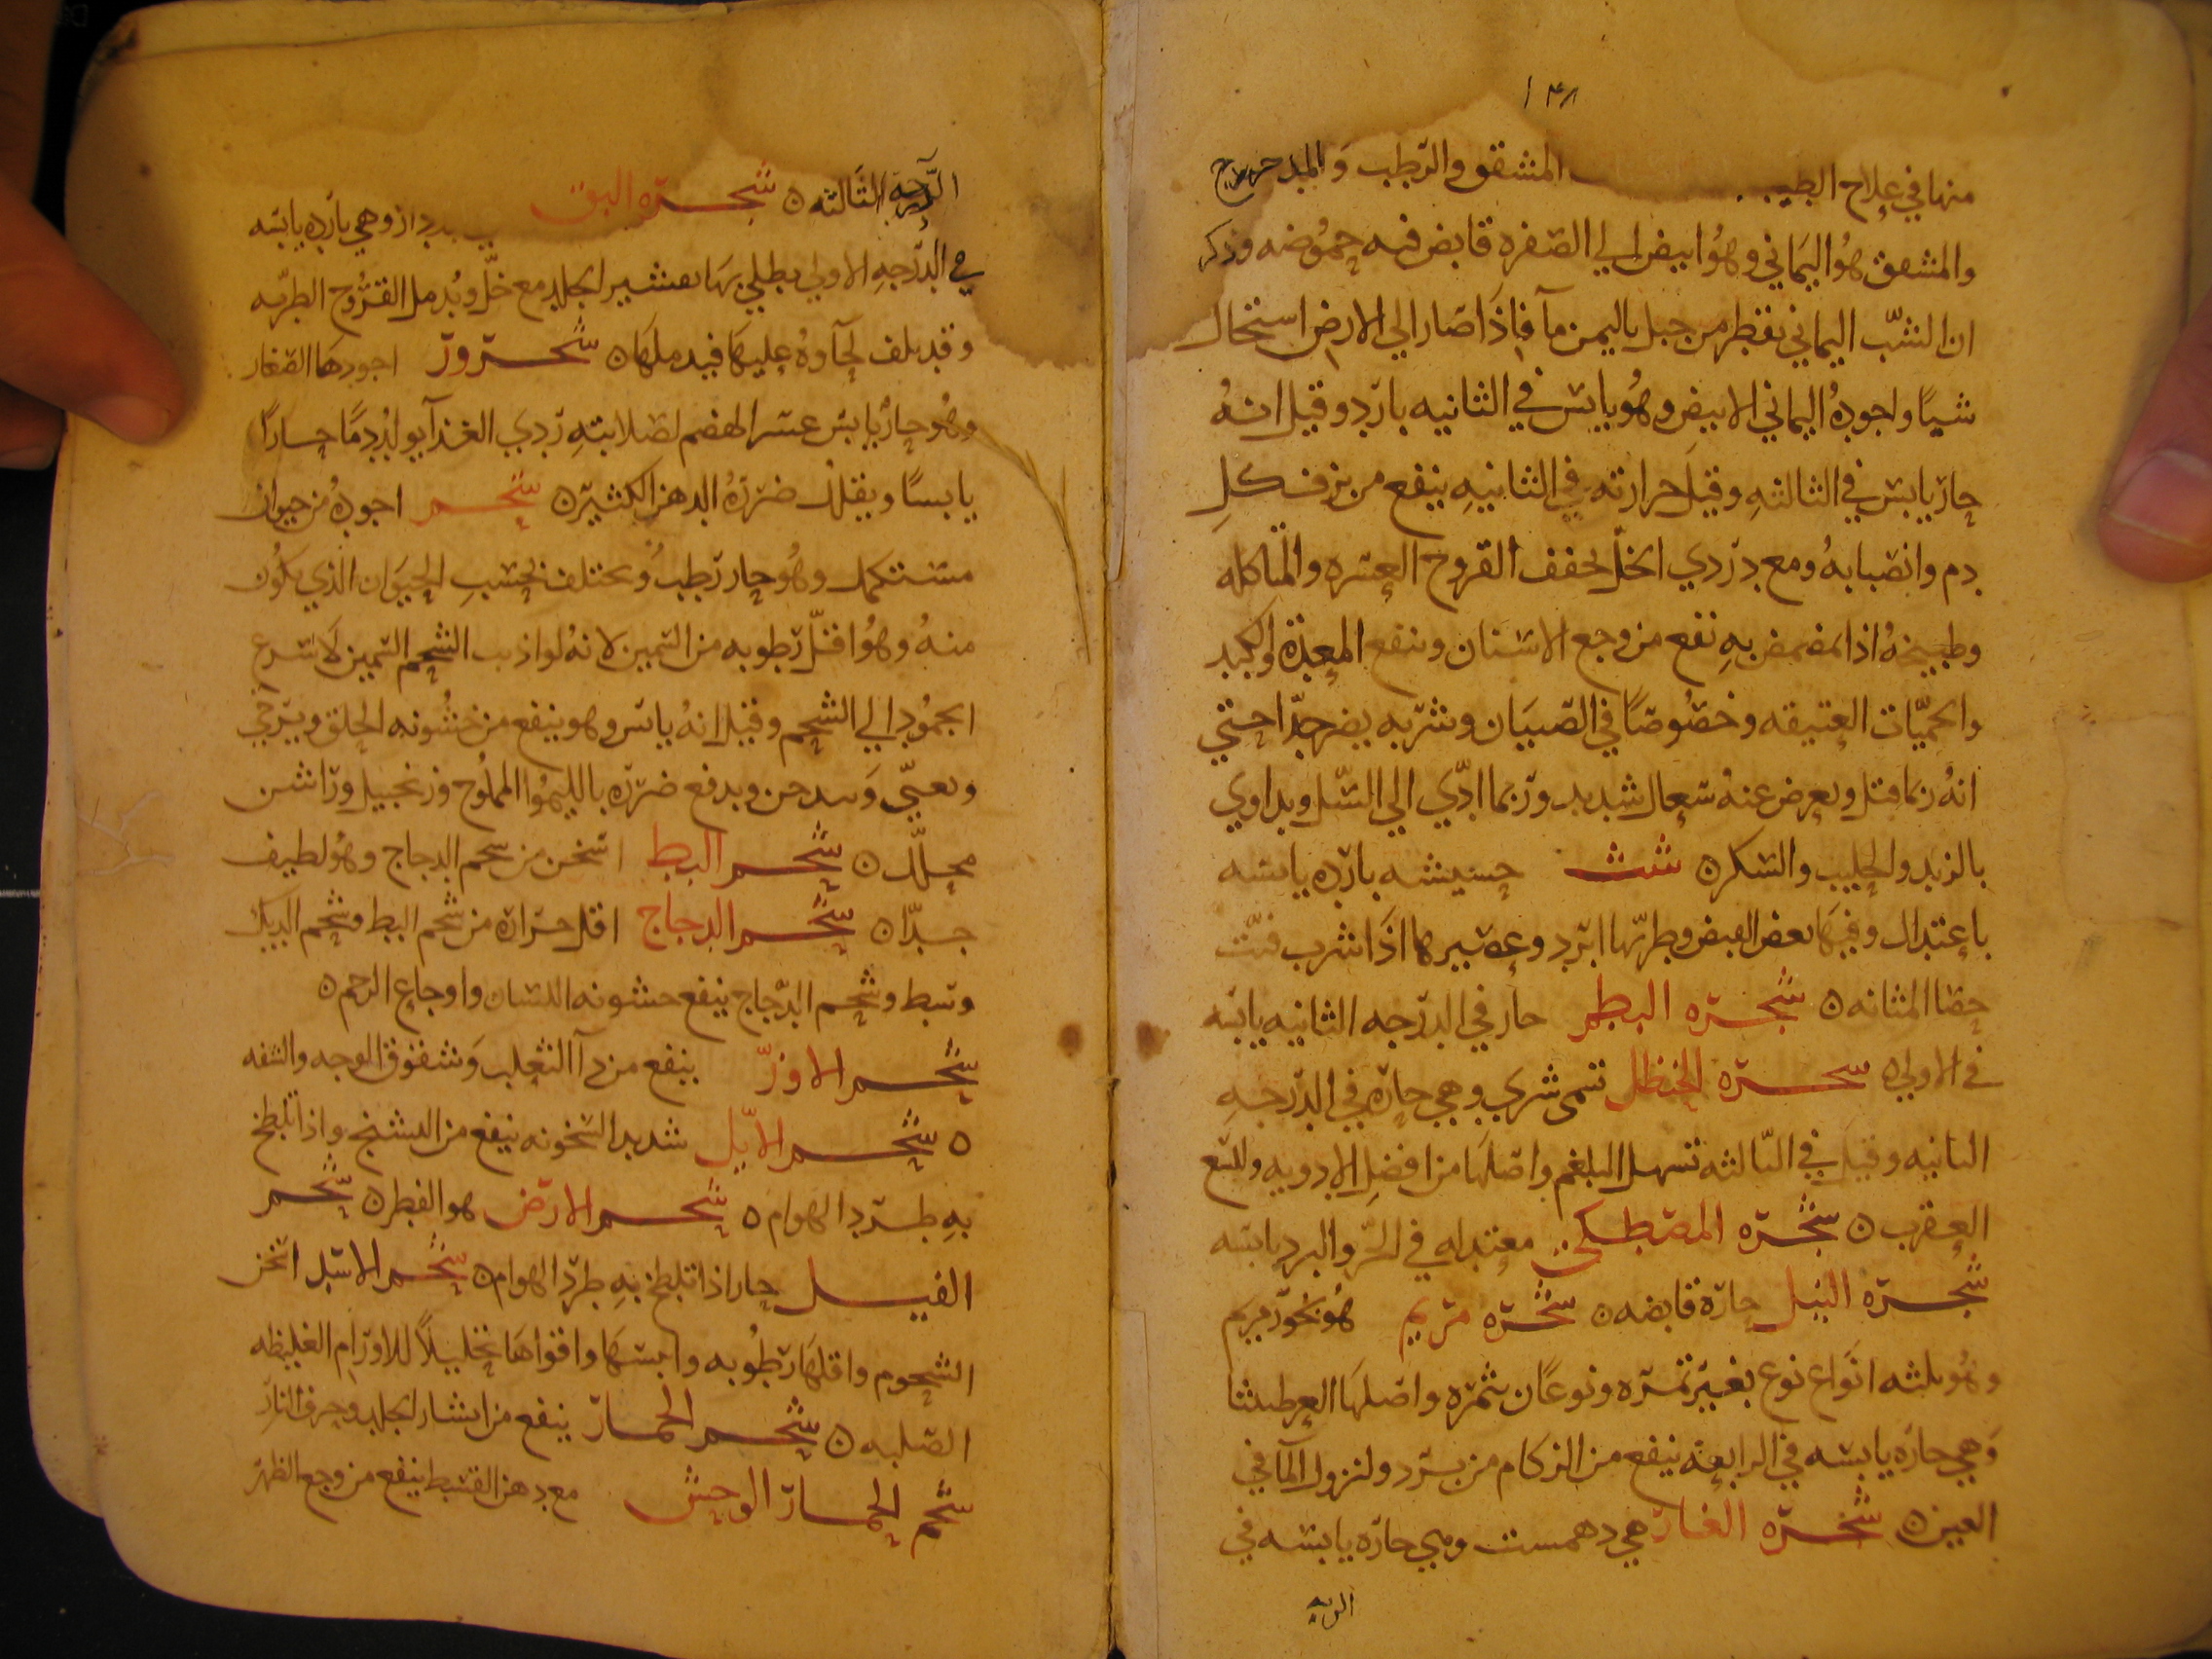 ١٣٨
منها في علاج الطب المشقق والرطب والمدحرج
والمشقق هو اليماني وهو ابيض الي الصفره قابض فيه حموضه وذكر
ان الشب اليماني يقطر من جبل باليمن مآ فاذا صار الي الارض استحال
شبا واجوده اليماني الابيض وهو يابس في الثانيه بارد وقيل انه
حار يابس في الثالثه وقيل حرارته في الثانيه ينفع من نزف كل
دم وانصبابه ومع دردي الخل يجفف القروح العسره والمتاكله
وطبيخه اذا تمضمض به نفع من وجع الاسنان وينفع المعدة والكبد
والحميات العتيقه وخصوصا في الصبيان وشربه يضر جدا حتي
انه ربما قتل ويعرض عنه سعال شديد وربما ادي الي السل ويداوي
بالزبد والحليب والسكر ه شث حشيشه بارده يابسه
باعتدال وفيها بعض القبض وطريها ابرد وعصيرها اذا شرب فتت
حصا المثانه ه شجره البطم حار في الدرجه الثانيه يابسه
في الاولي ه شجره الحنظل تسمى شري وهي حاره في الدرجه
الثانيه وقيل في الثالثه تسهل البلغم واصلها من افضل الادويه وللسع
العقرب ه شجره المصطكي معتدله في الحر والبرد يابسه
شجره النيل حاره قابضه ه شجره مريم هو بخور مريم
وهو ثلثه انواع نوع بغير ثمره ونوعان بثمره واصلها العرطنيثا
وهي حاره يابسه في الرابعه ينفع من الزكام من برد ولنزول المآ في
العين ه شجره الغار هي دهمست وهي حاره يابسه في
الدرجة الثالثه ه شجره البق دردار وهي بارده يابسه
في الدرجه الاولي يطلي بها تقشير الجلد مع خل ويدمل القروح الطريه
وقد يلف لحآوه عليها فيدملها ه شحرور اجودها الصغار
وهو حار يابس عسر الهضم لصلابته ردي الغذآ يولد دما حارا
يابسا ويقلل ضرره الدهن الكثير ه شحم اجوده من حيوان
مستكمل وهو حار رطب ويختلف بحسب الحيوان الذي يكون
منه وهو اقل رطوبه من السمين لانه لو اذيب الشحم والسمين لاسرع
الجمود الي الشحم وقيل انه يابس وهو ينفع من خشونه الحلق ويرخي
ويغثي ويدخن ويدفع ضرره بالليمو المملوح وزنجبيل وراسن
مخلل ه شحم البط اسخن من شحم الدجاج وهو لطيف
جدا ه شحم الدجاج اقل حراره من شحم البط وشحم الديك
وسط وشحم الدجاج ينفع خشونه اللسان واوجاع الرحم ه
شحم الاوز ينفع من دآ الثعلب وشقوق الوجه والشفه
ه شحم الايل شديد السخونه ينفع من التشنج واذا تلطخ
به طرد الهوام ه شحم الارض هو الفطر ه شحم
الفيل حار اذا تلطخ به طرد الهوام ه شحم الاسد اسخن
الشحوم واقلها رطوبه وايبسها واقواها تحليلا للاورام الغليظه
الصلبه ه شحم الحمار ينفع من اثار الجلد وحرق النار
شحم الحمار الوحش مع دهن القسط ينفع من وجع الظهر